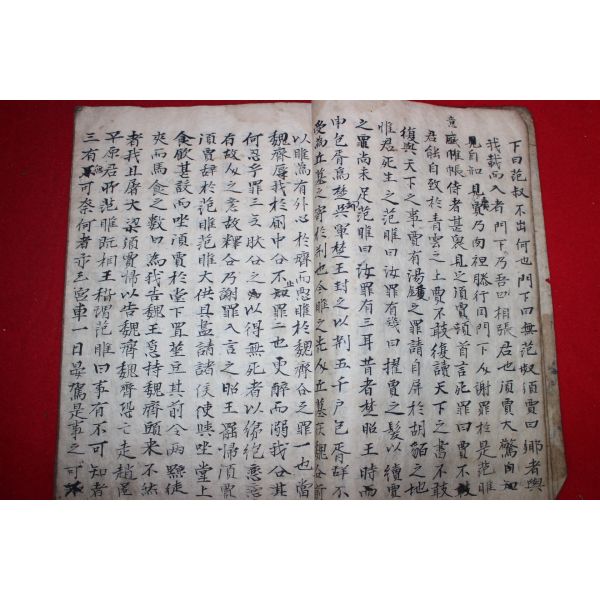 下曰范叔不出何也門下曰無范叔須賈曰鄉者與
我載而入者門下乃吾相張君也須賈大驚自知
見賣乃肉袒膝行因門下人謝罪於是范睢
盛帷帳侍者甚衆見之須賈頓首言死罪曰賈不
君能自致於青雲之上賈不敢復讀天下之書不敢
復與天下之事賈有湯鑊之罪請自屏於胡貉之地
唯君死生之范睢曰汝罪有幾曰擢賈之髮以續賈
之罪尚未足范睢曰汝罪有三耳昔者楚昭王時而
申包胥爲楚軍楚王封之以荊五千戶包胥辭不
受爲丘墓之寄於荊也今睢之先人丘墓在魏公前
以睢爲有外心於齊而惡睢於魏齊公之罪一也當
魏齊辱我於廁中公不止罪二也更醉而溺我公其
何忍乎罪三矣然公之所以得無死者以綈袍戀戀
有故人之意故釋公乃謝罷入言之昭王罷歸須賈
須賈辭於范睢范睢大供具盡請諸侯使與坐堂上
食飲甚設而坐須賈於堂下置莝豆其前令兩黥徒
夾而馬食之數曰爲我告魏王急持魏齊頭來不然
者我且屠大梁須賈歸以告魏齊魏齊恐亡走趙匿
平原君所范睢旣相王稽謂范睢曰事有不可知者
三有不可奈何者亦三宮車一日晏駕是事之可